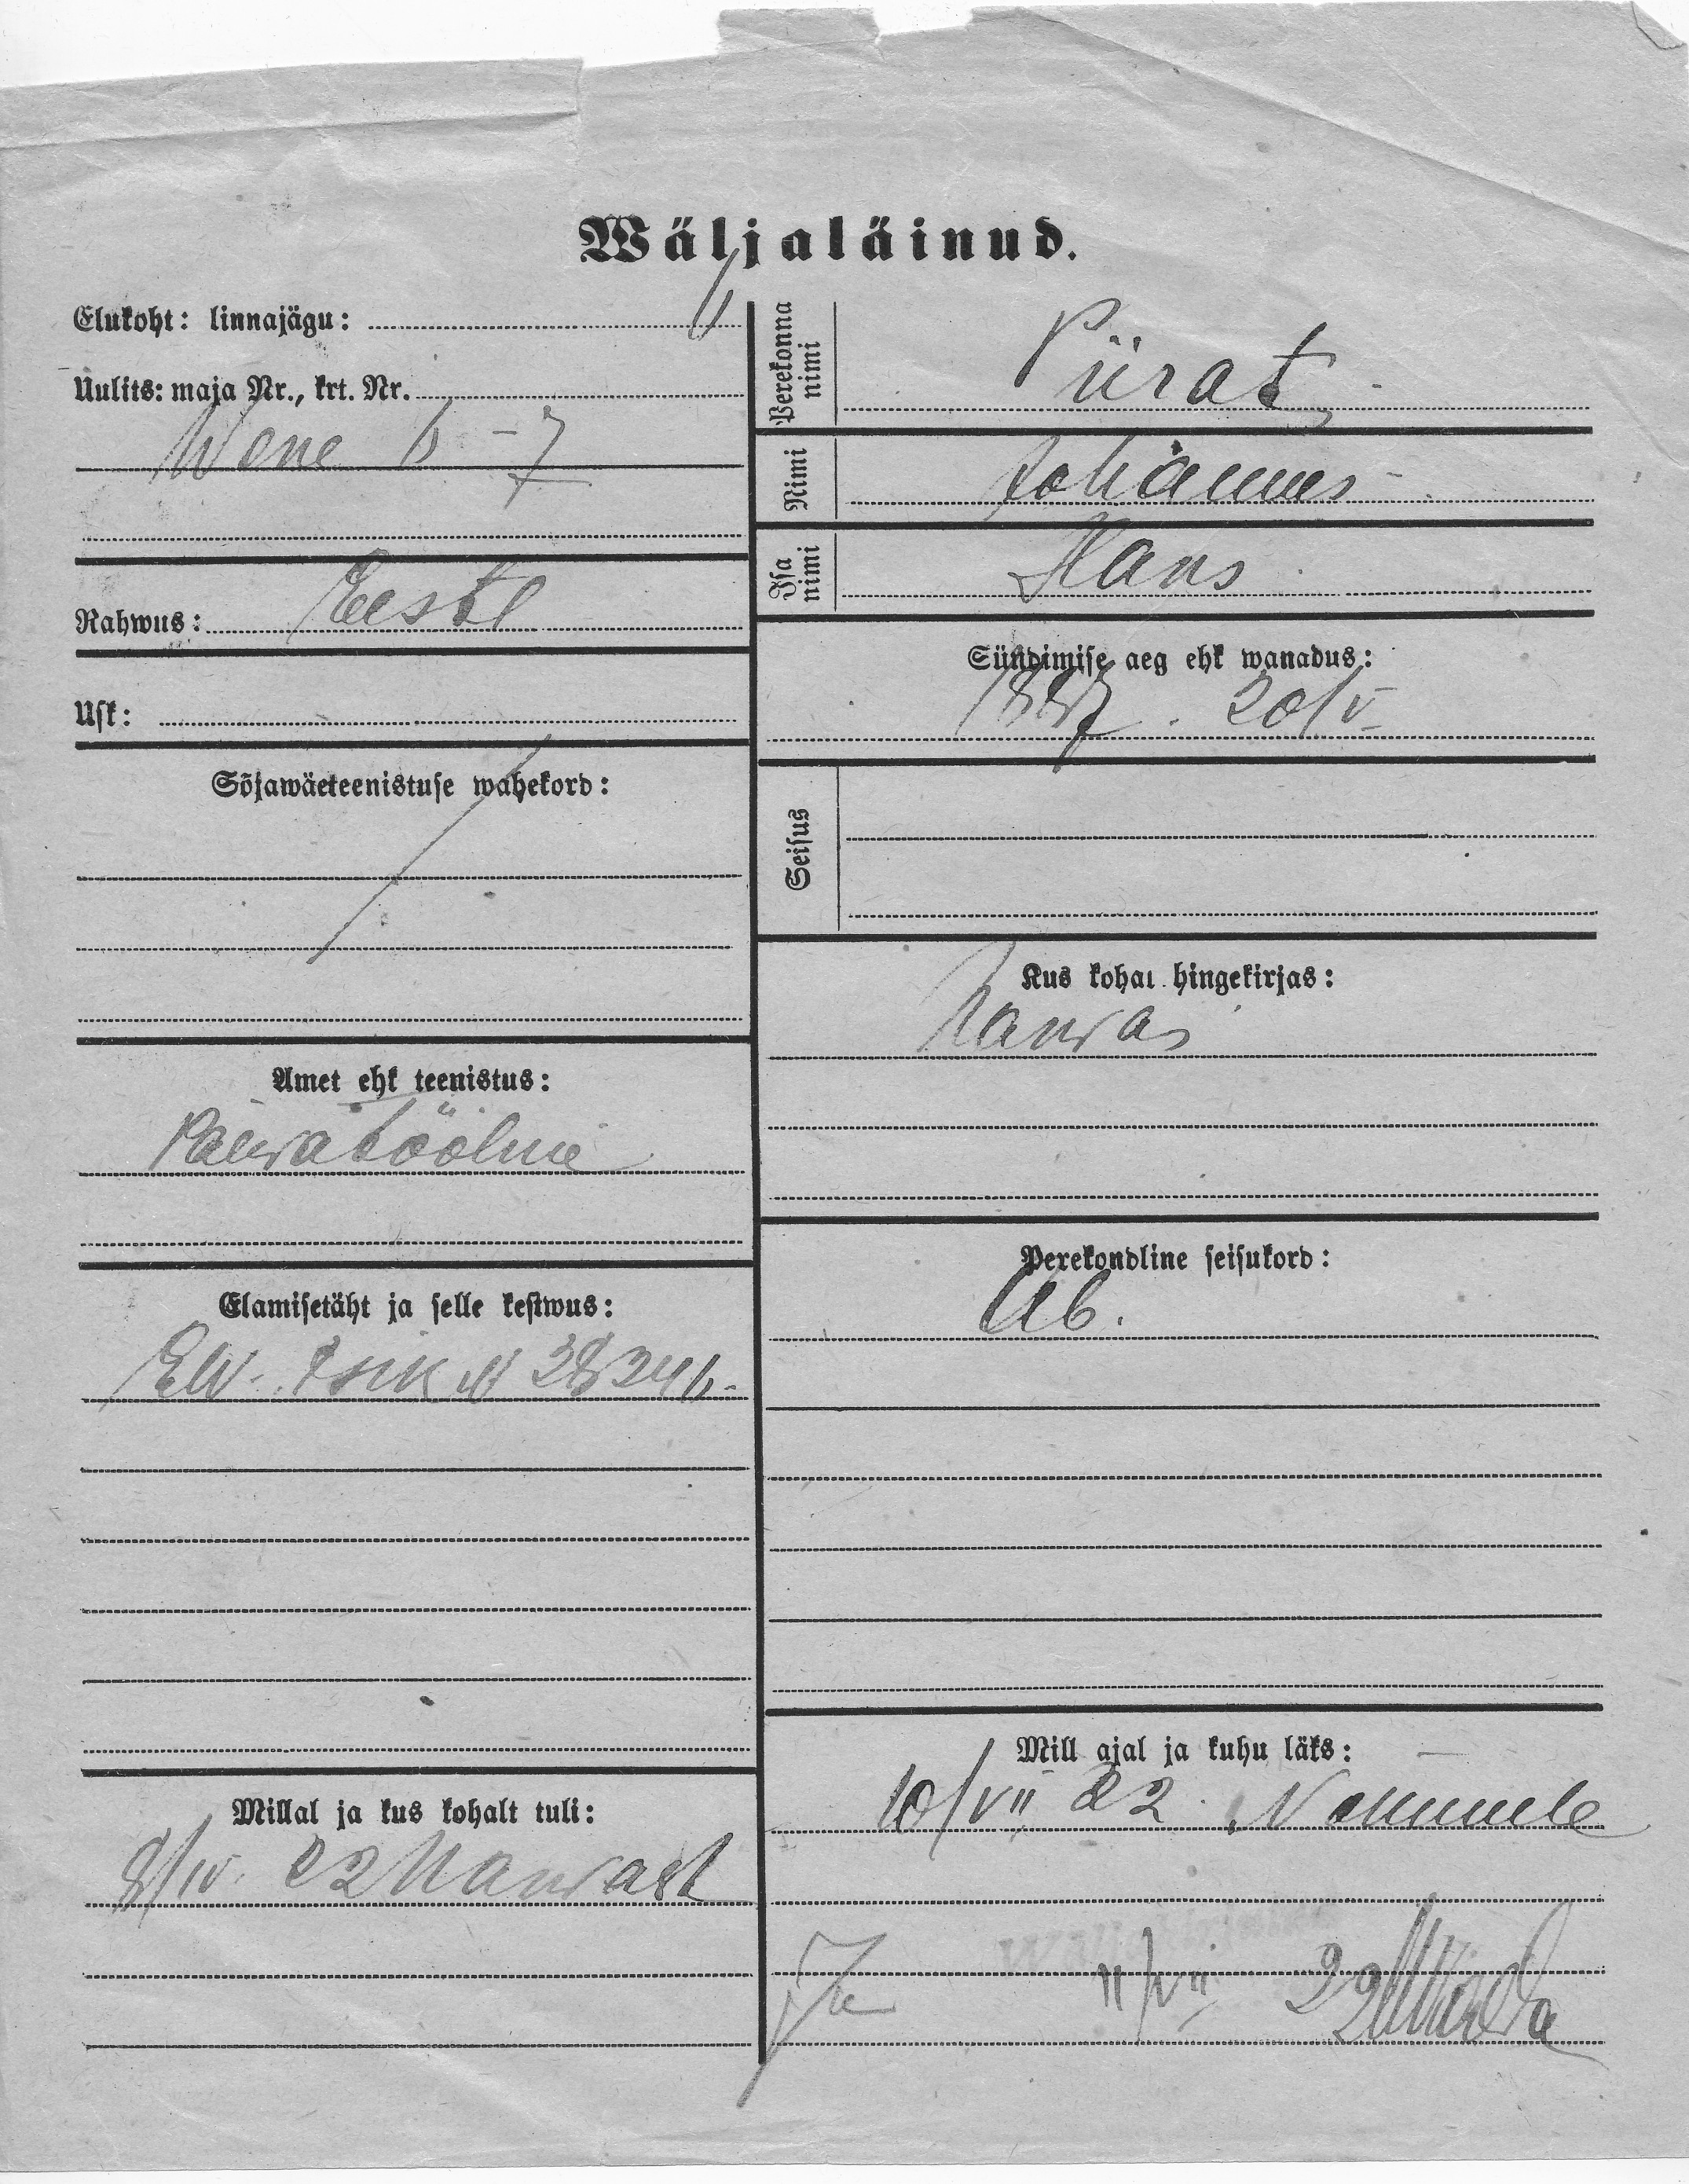 Wäljaläinud.
Elukoht: linnajägu:
Uulits: maja Nr., krt. Nr.
Wene 6 - 7
Rahwus: Eesti
Usk:
Sõjawäeteenistuse wahekord:
Amet ehk teenistus:
Päewatööline
Elamisetäht ja selle kestwus:
EW. Isik № 28346.
Millal ja kus kohalt tuli:
8/IV. 22 Narwast
Perekonna nimi Piirat
Nimi Johannes
Isa nimi Hans
Sündimise aeg ehk wanadus:
1887. 20/V
Seisus
Kus kohal hingekirjas:
Narwas
Perekondline seisukord:
Ab.
Mill ajal ja kuhu läks:
10/VII 22. Nõmmele
11/VII 22